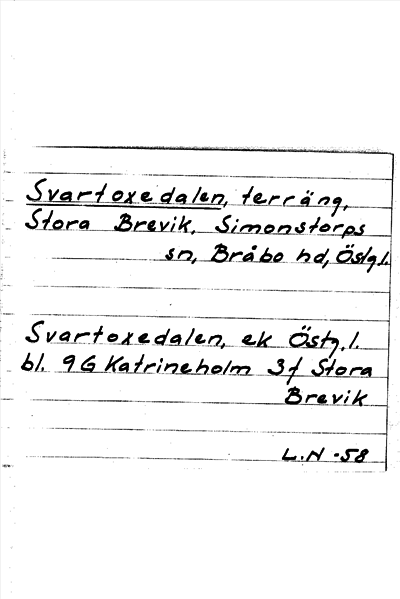 Svartoxedalen, terräng,
Stora Brevik, Simonstorps
sn, Bråbo hd, Östg.l.
Svartoxedalen, ek Östg.l.
bl. 9G Katrineholm 3f Stora
Brevik
L.N -58